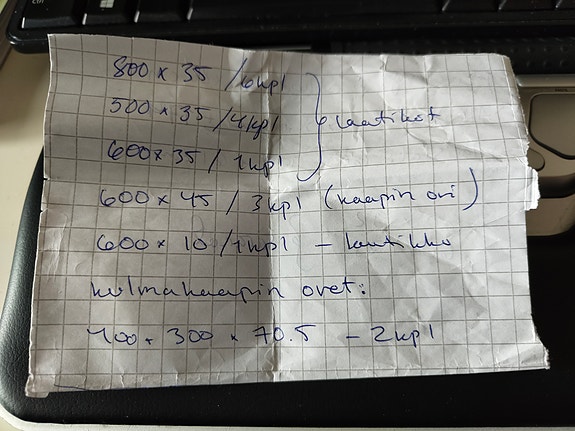 800 x 35 / 6kpl
500 x 35 / 4kpl laatikot
600 x 35 / 1kpl
600 x 45 / 3kpl (kaapin ovi)
600 x 10 / 1kpl – laatikko
kulmakaapin ovet:
400 x 300 x 70.5 – 2kpl